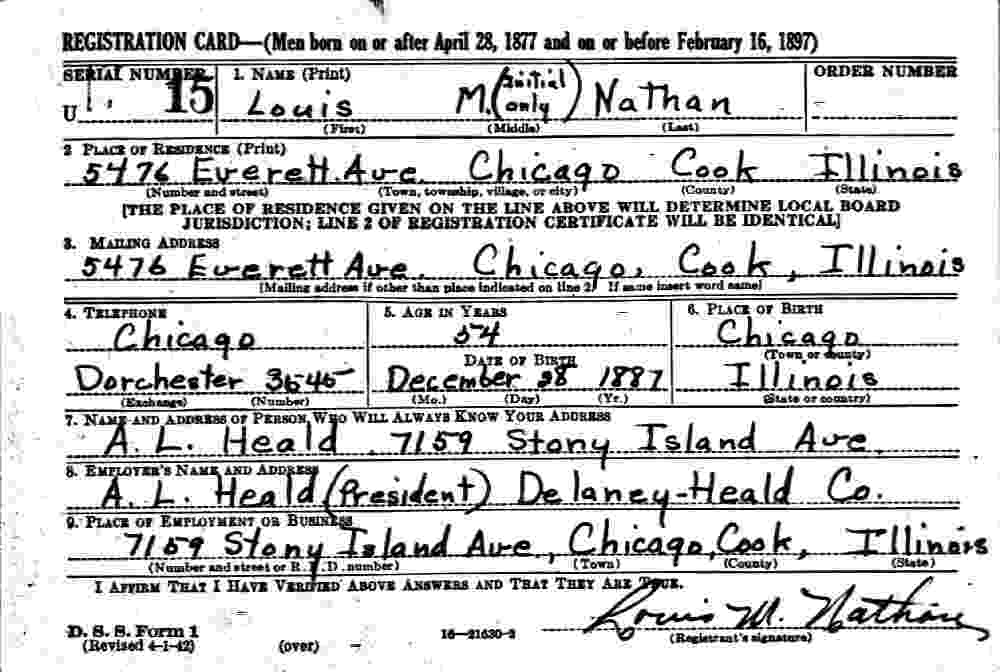 REGISTRATION CARD—(Men born on or after April 28, 1877 and on or before February 16, 1897)
SERIAL NUMBER 1. NAME (Print) ORDER NUMBER
U 15 Louis M. (initial only) Nathan
(First) (Middle) (Last)
2 PLACE OF RESIDENCE (Print)
5476 Everett Ave. Chicago Cook Illinois
(Number and street) (Town, township, village, or city) (County) (State)
[THE PLACE OF RESIDENCE GIVEN ON THE LINE ABOVE WILL DETERMINE LOCAL BOARD
JURISDICTION; LINE 2 OF REGISTRATION CERTIFICATE WILL BE IDENTICAL]
3. MAILING ADDRESS
5476 Everett Ave. Chicago, Cook, Illinois
[Mailing address if other than place indicated on line 2 If same insert word same]
4. TELEPHONE 5. AGE IN YEARS 6. PLACE OF BIRTH
Chicago 54 Chicago
DATE OF BIRTH (Town or county)
Dorchester 3645 December 28 1887 Illinois
(Exchange) (Number) (Mo.) (Day) (Yr.) (State or country)
7. NAME AND ADDRESS OF PERSON WHO WILL ALWAYS KNOW YOUR ADDRESS
A. L. Heald 7159 Stony Island Ave.
8. EMPLOYER'S NAME AND ADDRESS
A. L. Heald (President) Delaney-Heald Co.
9. PLACE OF EMPLOYMENT OR BUSINESS
7159 Stony Island Ave, Chicago, Cook, Illinois
(Number and street or R. F. D. number) (Town) (County) (State)
I AFFIRM THAT I HAVE VERIFIED ABOVE ANSWERS AND THAT THEY ARE TRUE.
Louis M. Nathan
D. S. S. Form 1
(Revised 4-1-42) (over) 16—21630-2 (Registrant's signature)